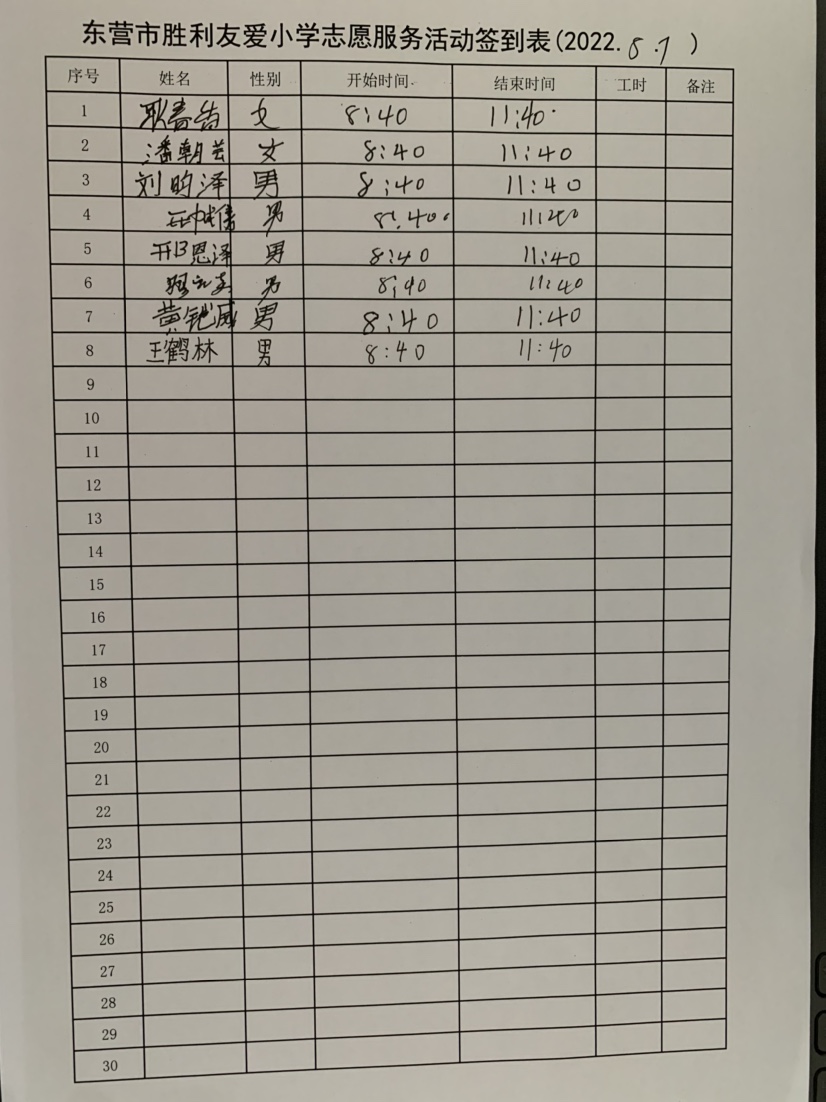 东营市胜利友爱小学志愿服务活动签到表(2022.8.7)
序号 姓名 性别 开始时间 结束时间 工时 备注
1 女 8:40 11:40
2 潘朝芸 女 8:40 11:40
3 刘昀泽 男 8:40 11:40
4 男 8:40 11:40
5 恩泽 男 8:40 11:40
6 男 8:40 11:40
7 黄铠威 男 8:40 11:40
8 王鹤林 男 8:40 11:40
9
10
11
12
13
14
15
16
17
18
19
20
21
22
23
24
25
26
27
28
29
30